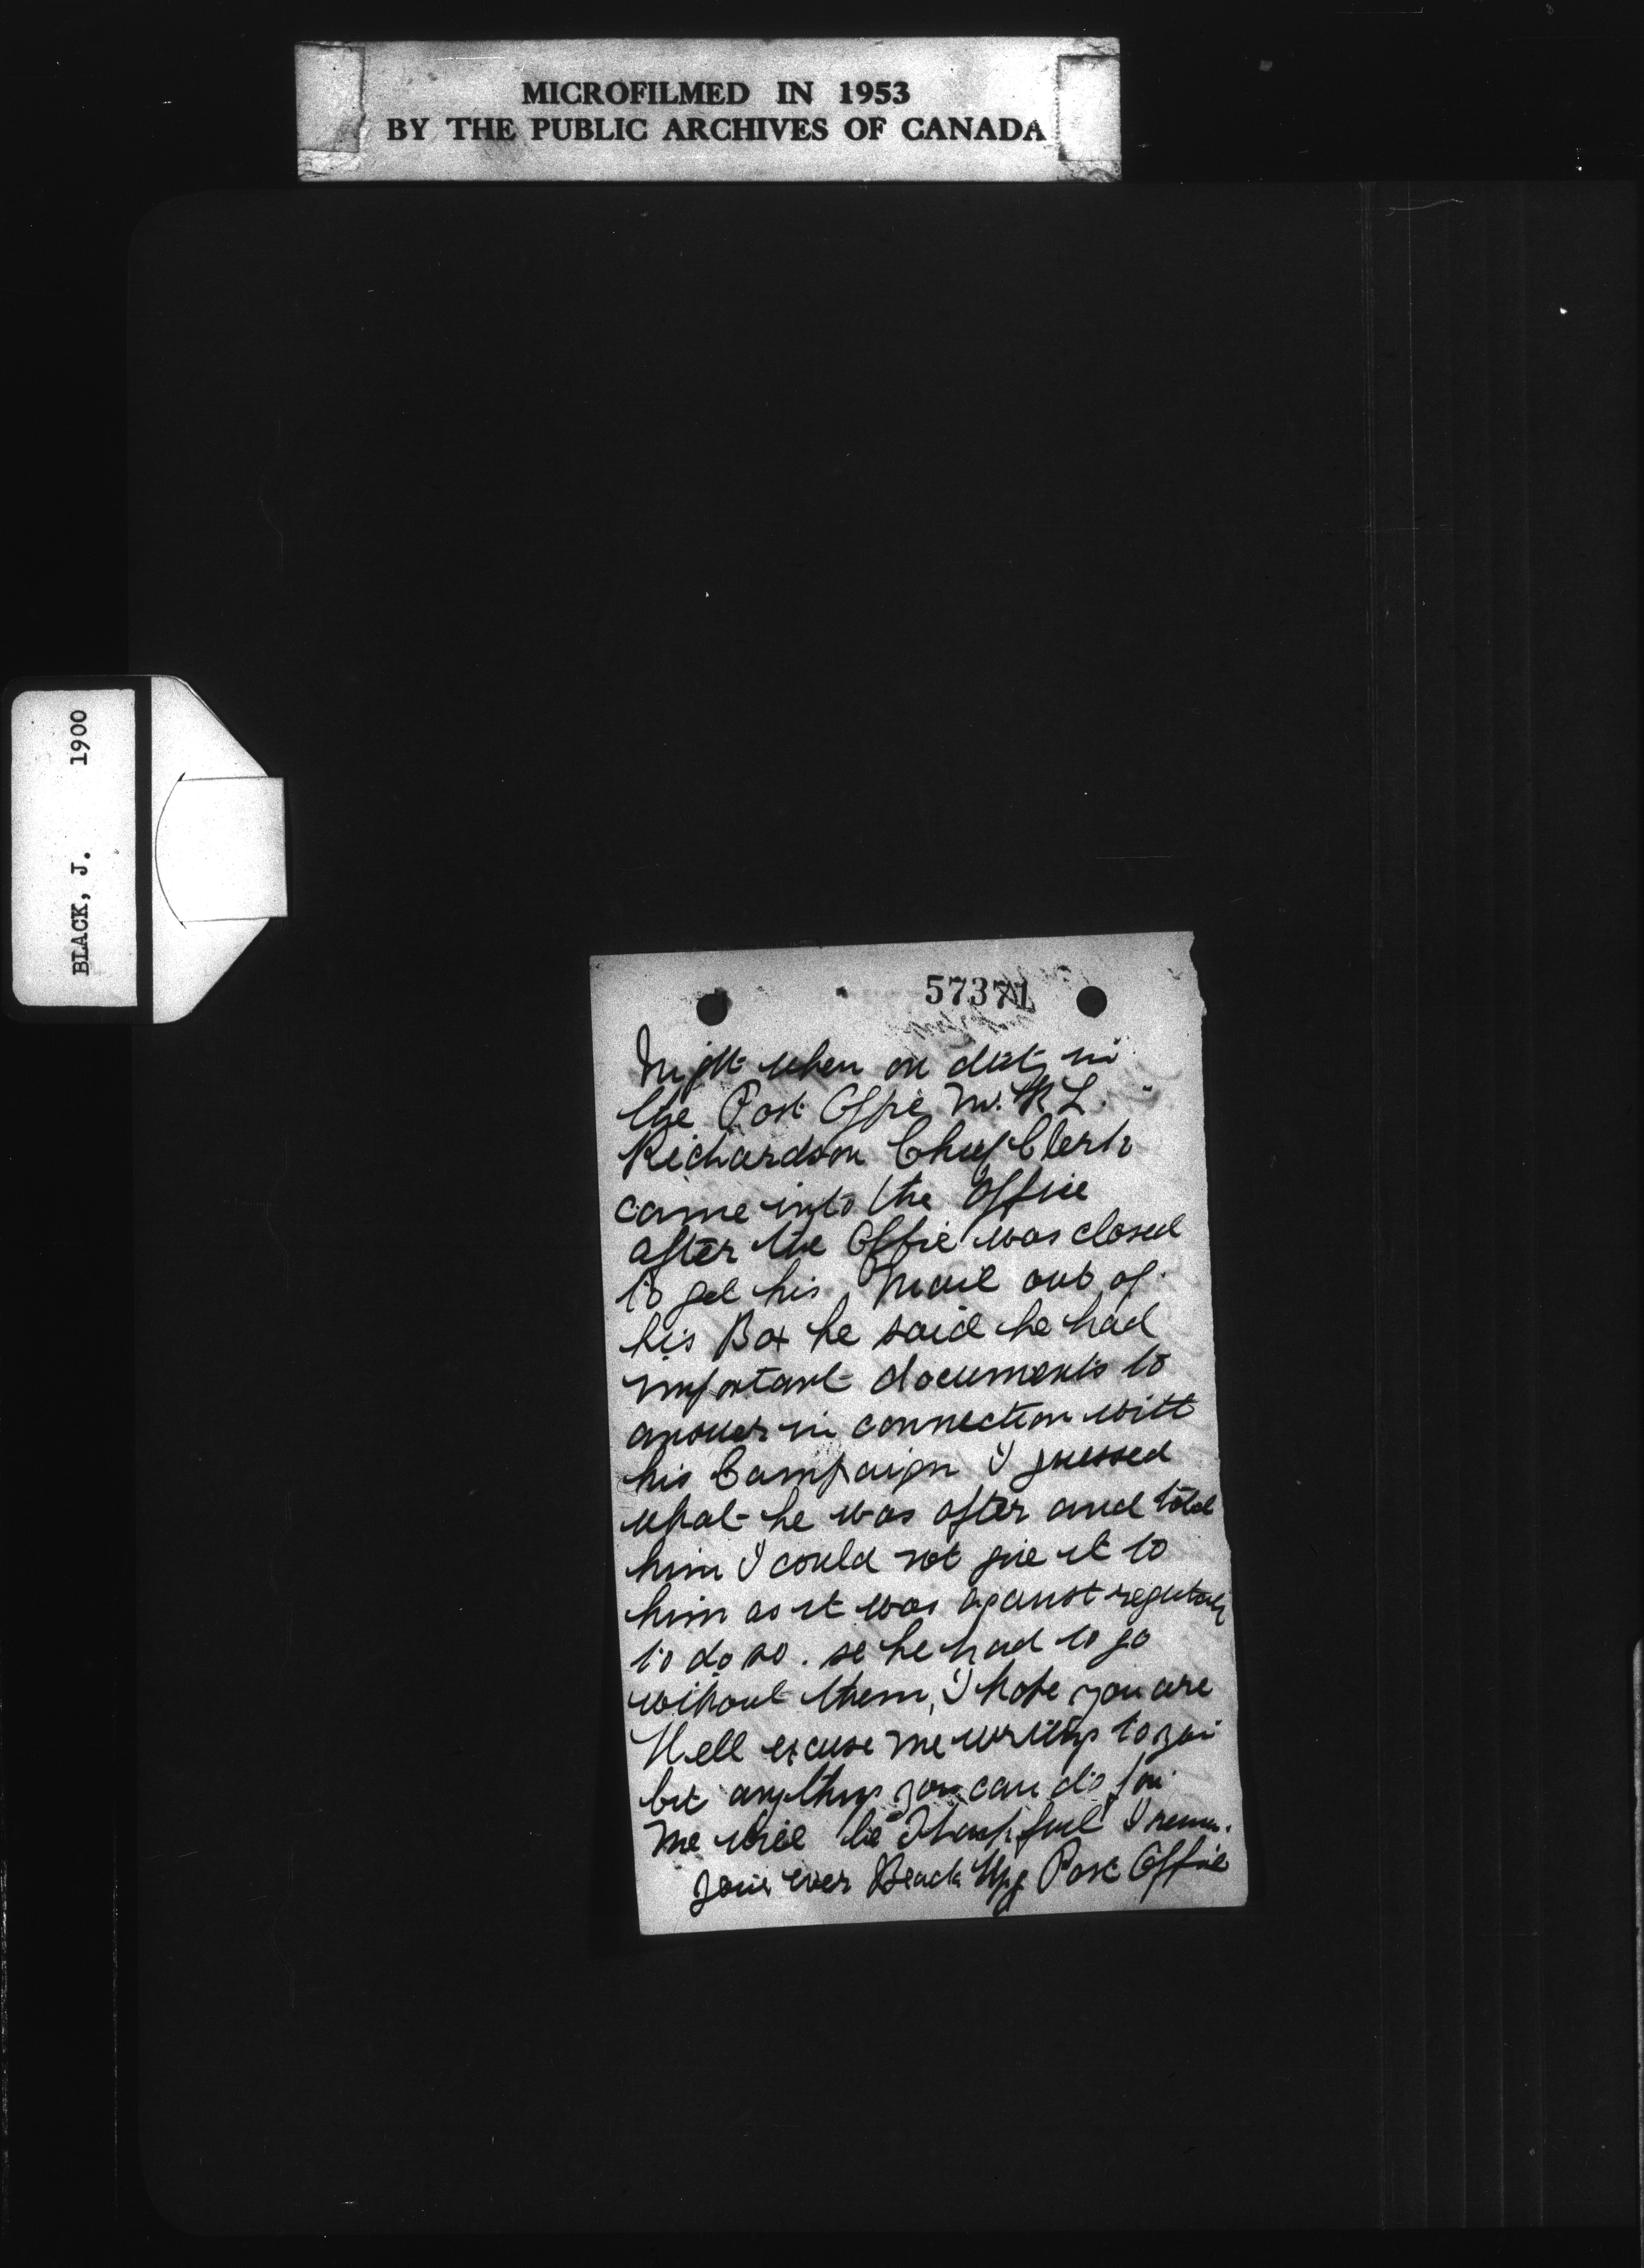 MICROFILMED IN 1953
BY THE PUBLIC ARCHIVES OF CANADA
BLACK, J. 1900
57371
Night when on duty in
the Post Office Mr. R L.
Richardson Chief Clerk
came into the Office
after the Office was closed
to get his Mail out of
his Box he said he had
important documents to
answer in connection with
his Campaign I guessed
what he was after and told
him I could not give it to
him as it was against
to do so. so he had to go
without them, I hope you are
Well excuse me writing to you
but anything you can do for
me will be I
ever Black Wpg Post Office